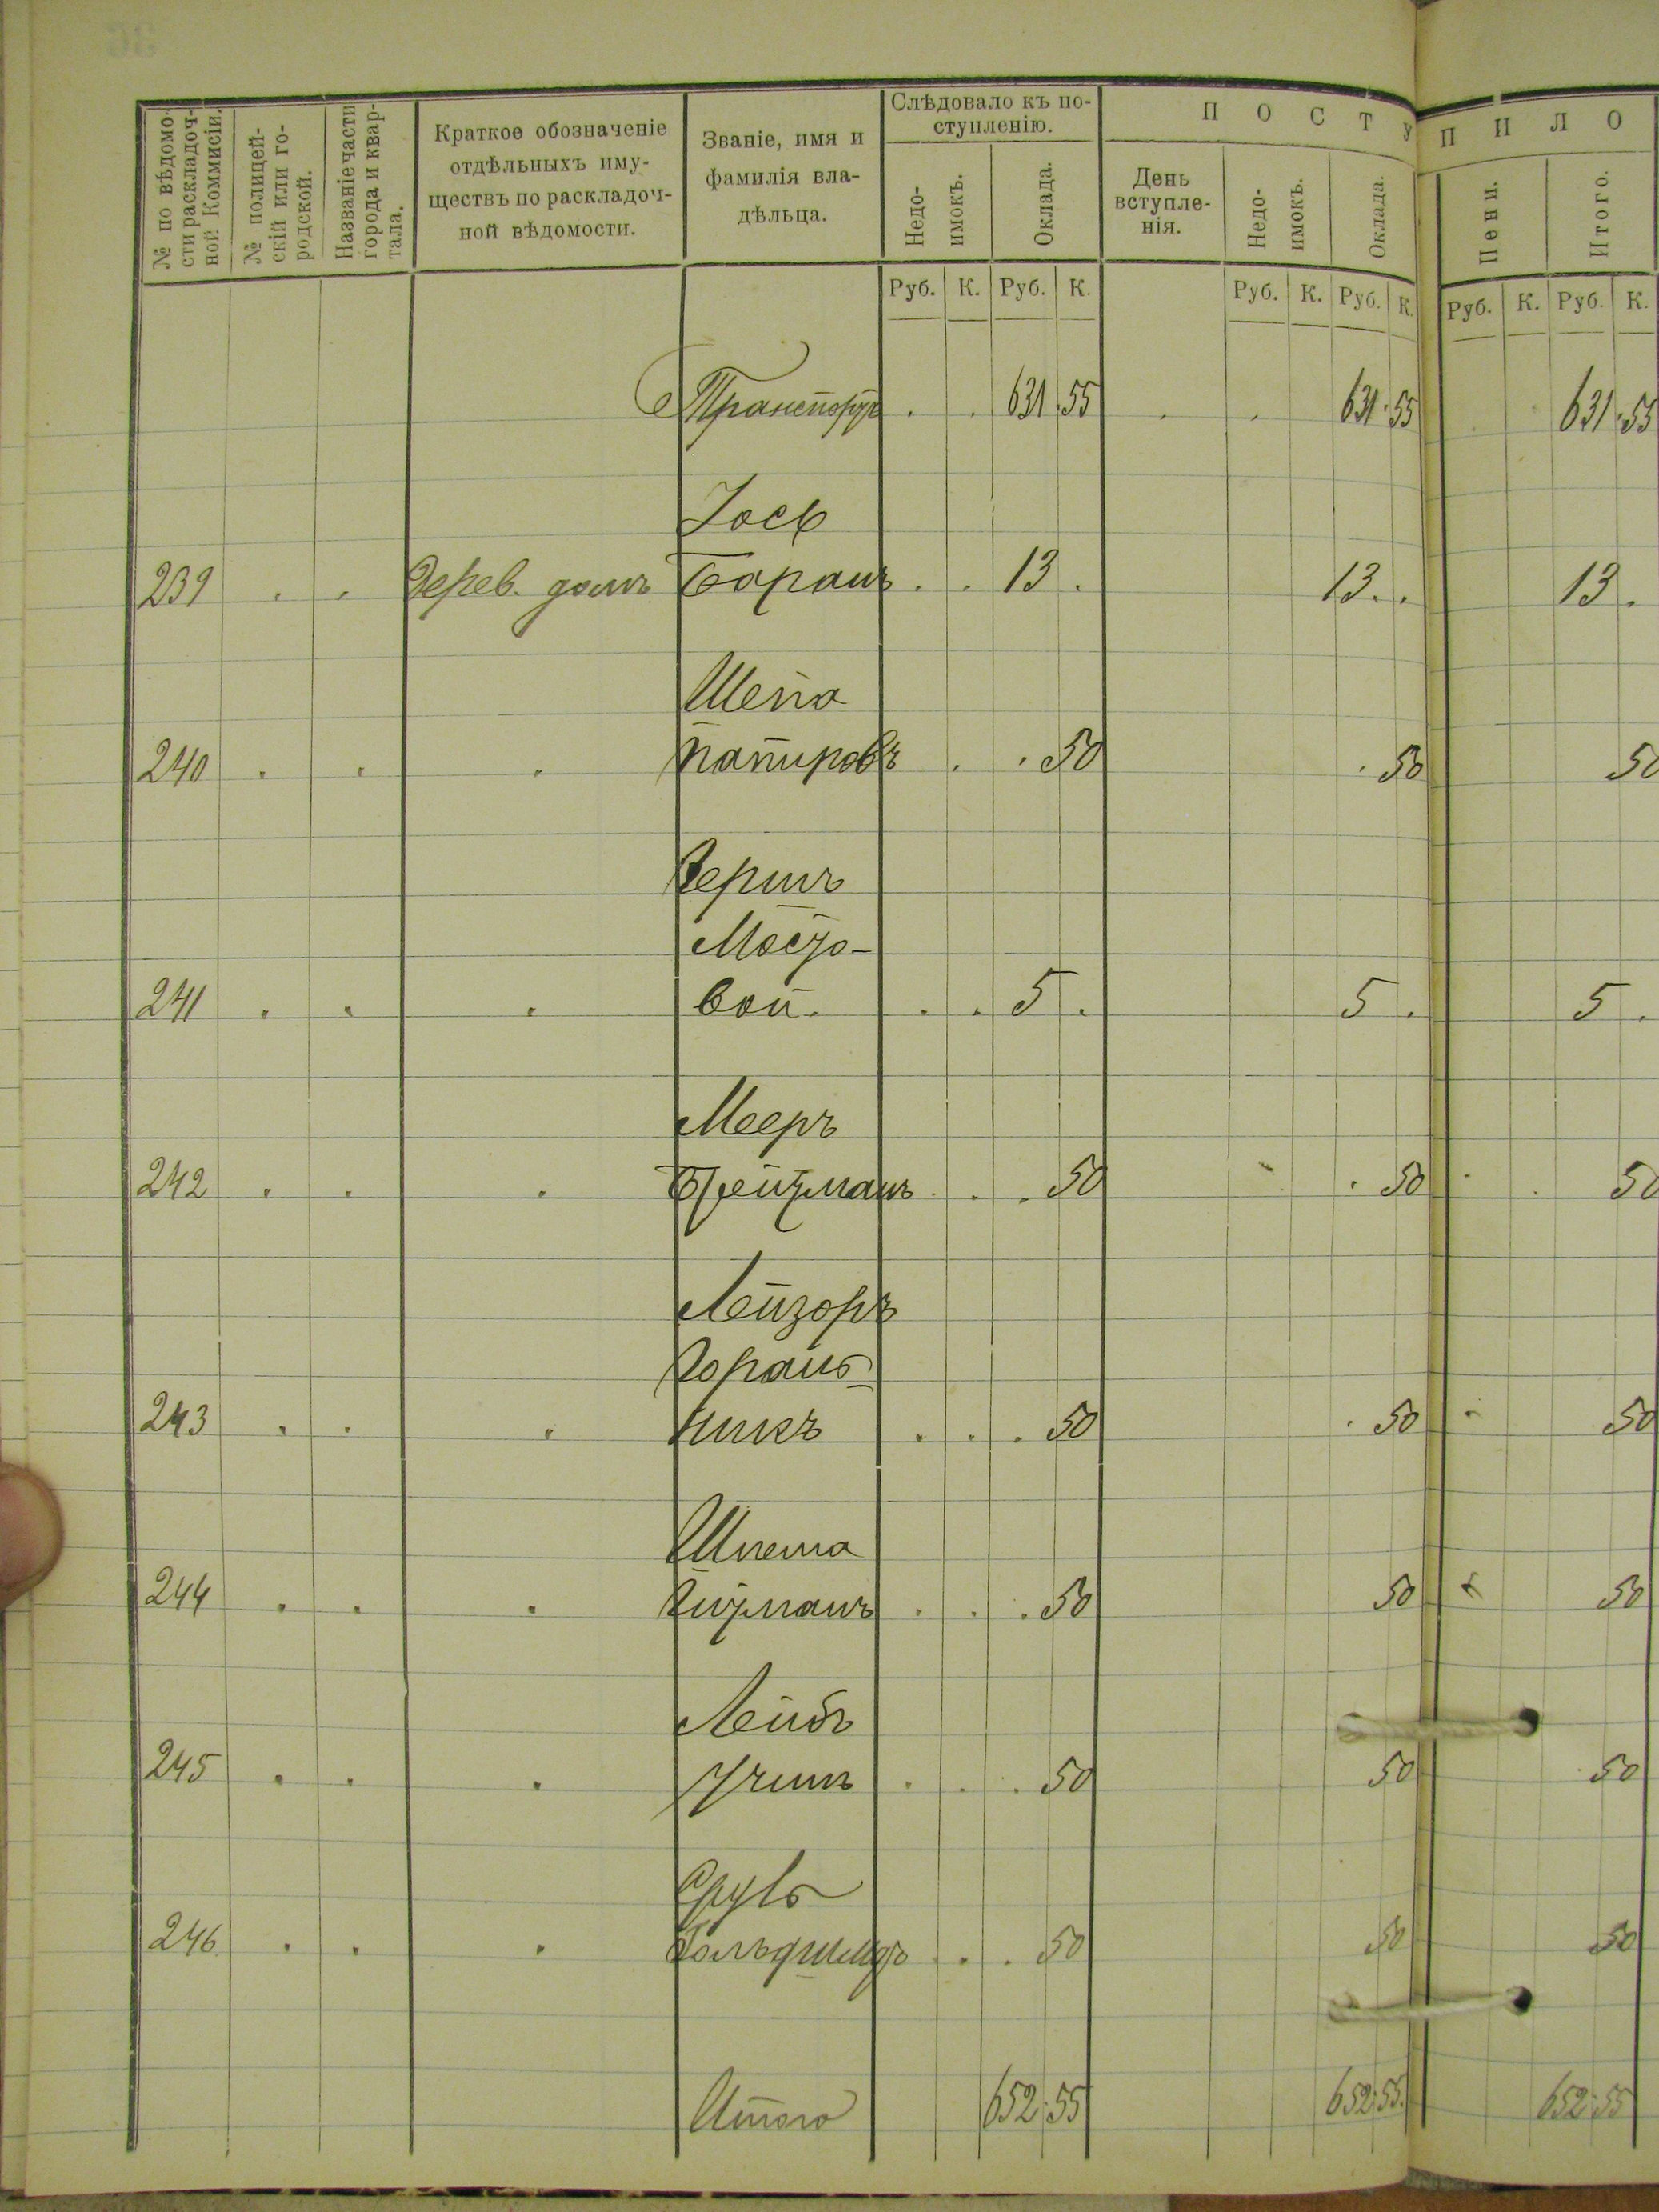 № по вѣдомо-
сти раскладоч-
ной Коммисіи.
№ полицей-
скій или го-
родской.
Названіе части
города и квар-
тала.
Краткое обозначеніе
отдѣльныхъ иму-
ществъ по раскладоч-
ной вѣдомости.
Званіе, имя и
фамилія вла-
дѣльца.
Слѣдовало къ по-
ступленію.
Недо-
имокъ.
Оклада.
П О С Т У П И Л О
День
вступле-
нія.
Недо-
имокъ.
Оклада.
Пени.
Итого.
Руб. К. Руб. К. Руб. К. Руб. К. Руб. К. Руб. К.
Транспортъ . . 631.55 . . 631.55 631.55
Іось
239 . . Дерев. домъ Баранъ . . 13 . 13 . . 13 .
240 . . . Папировъ . . 50 . 50 50
Гершъ
Мосто-
241 . . . вой. . . 5 . 5 . 5 .
Мееръ
242 . . . Брейтманъ . . . 50 . 50 50
Лейзоръ
Горань-
243 . . . никъ . . . 50 . 50 50
Шлема
244 . . . Гитманъ . . . 50 50 50
Лейбъ
245 . . . . . . 50 50 50
Сруль
246 . . . Гольдшмидъ . . 50 50 50
Итого 652.55 652.55. 652.55